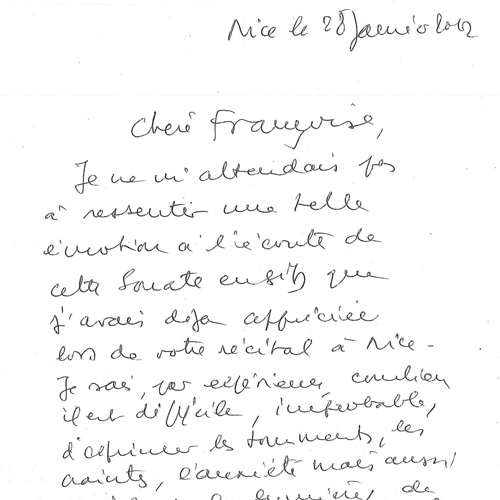 Nice le 28 Janvier 2012
Chère Françoise,
Je ne m'attendais pas
à ressentir une telle
émotion à l'écoute de
cette Sonate en si b que
j'avais déjà appréciée
lors de votre récital à Nice -
Je sais, par expérience, combien
il est difficile, improbable,
d'exprimer les tourments, les
craintes, l'anxiété mais aussi
lumière, de